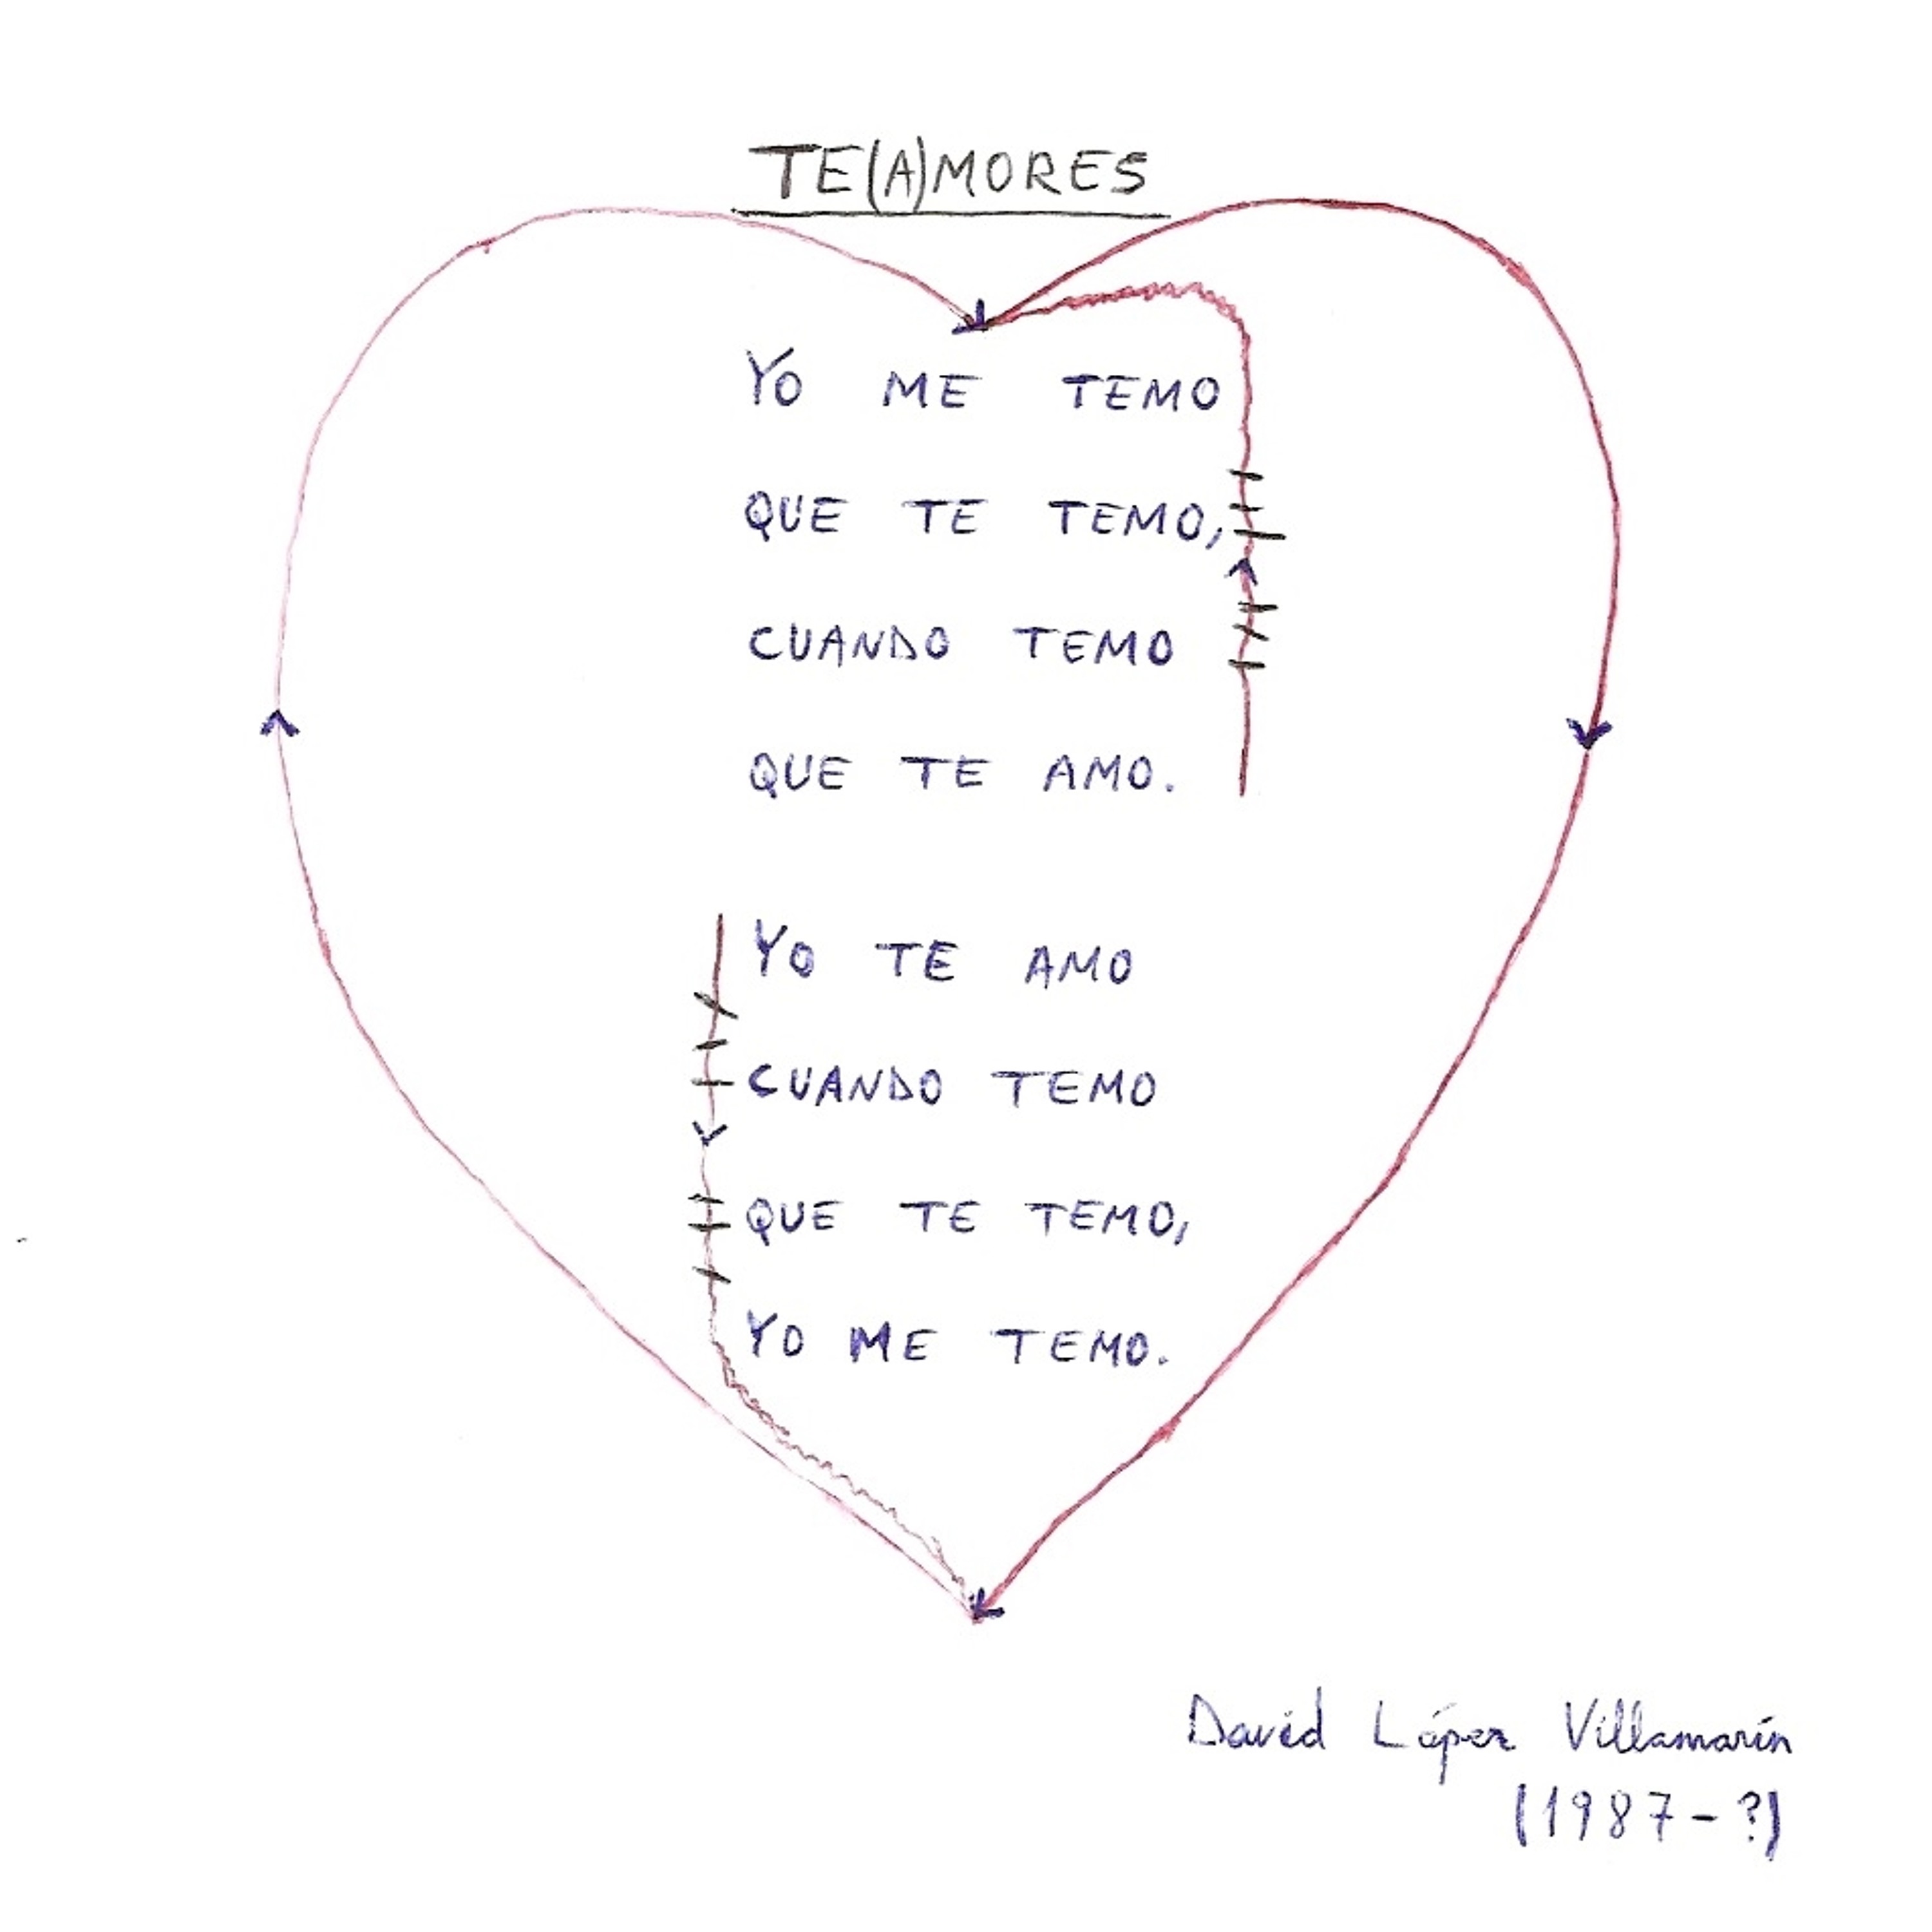 TE(A)MORES
YO ME TEMO
QUE TE TEMO,
CUANDO TEMO
QUE TE AMO.
YO TE AMO
CUANDO TEMO
QUE TE TEMO,
YO ME TEMO.
David López Villamarín
(1987-?)